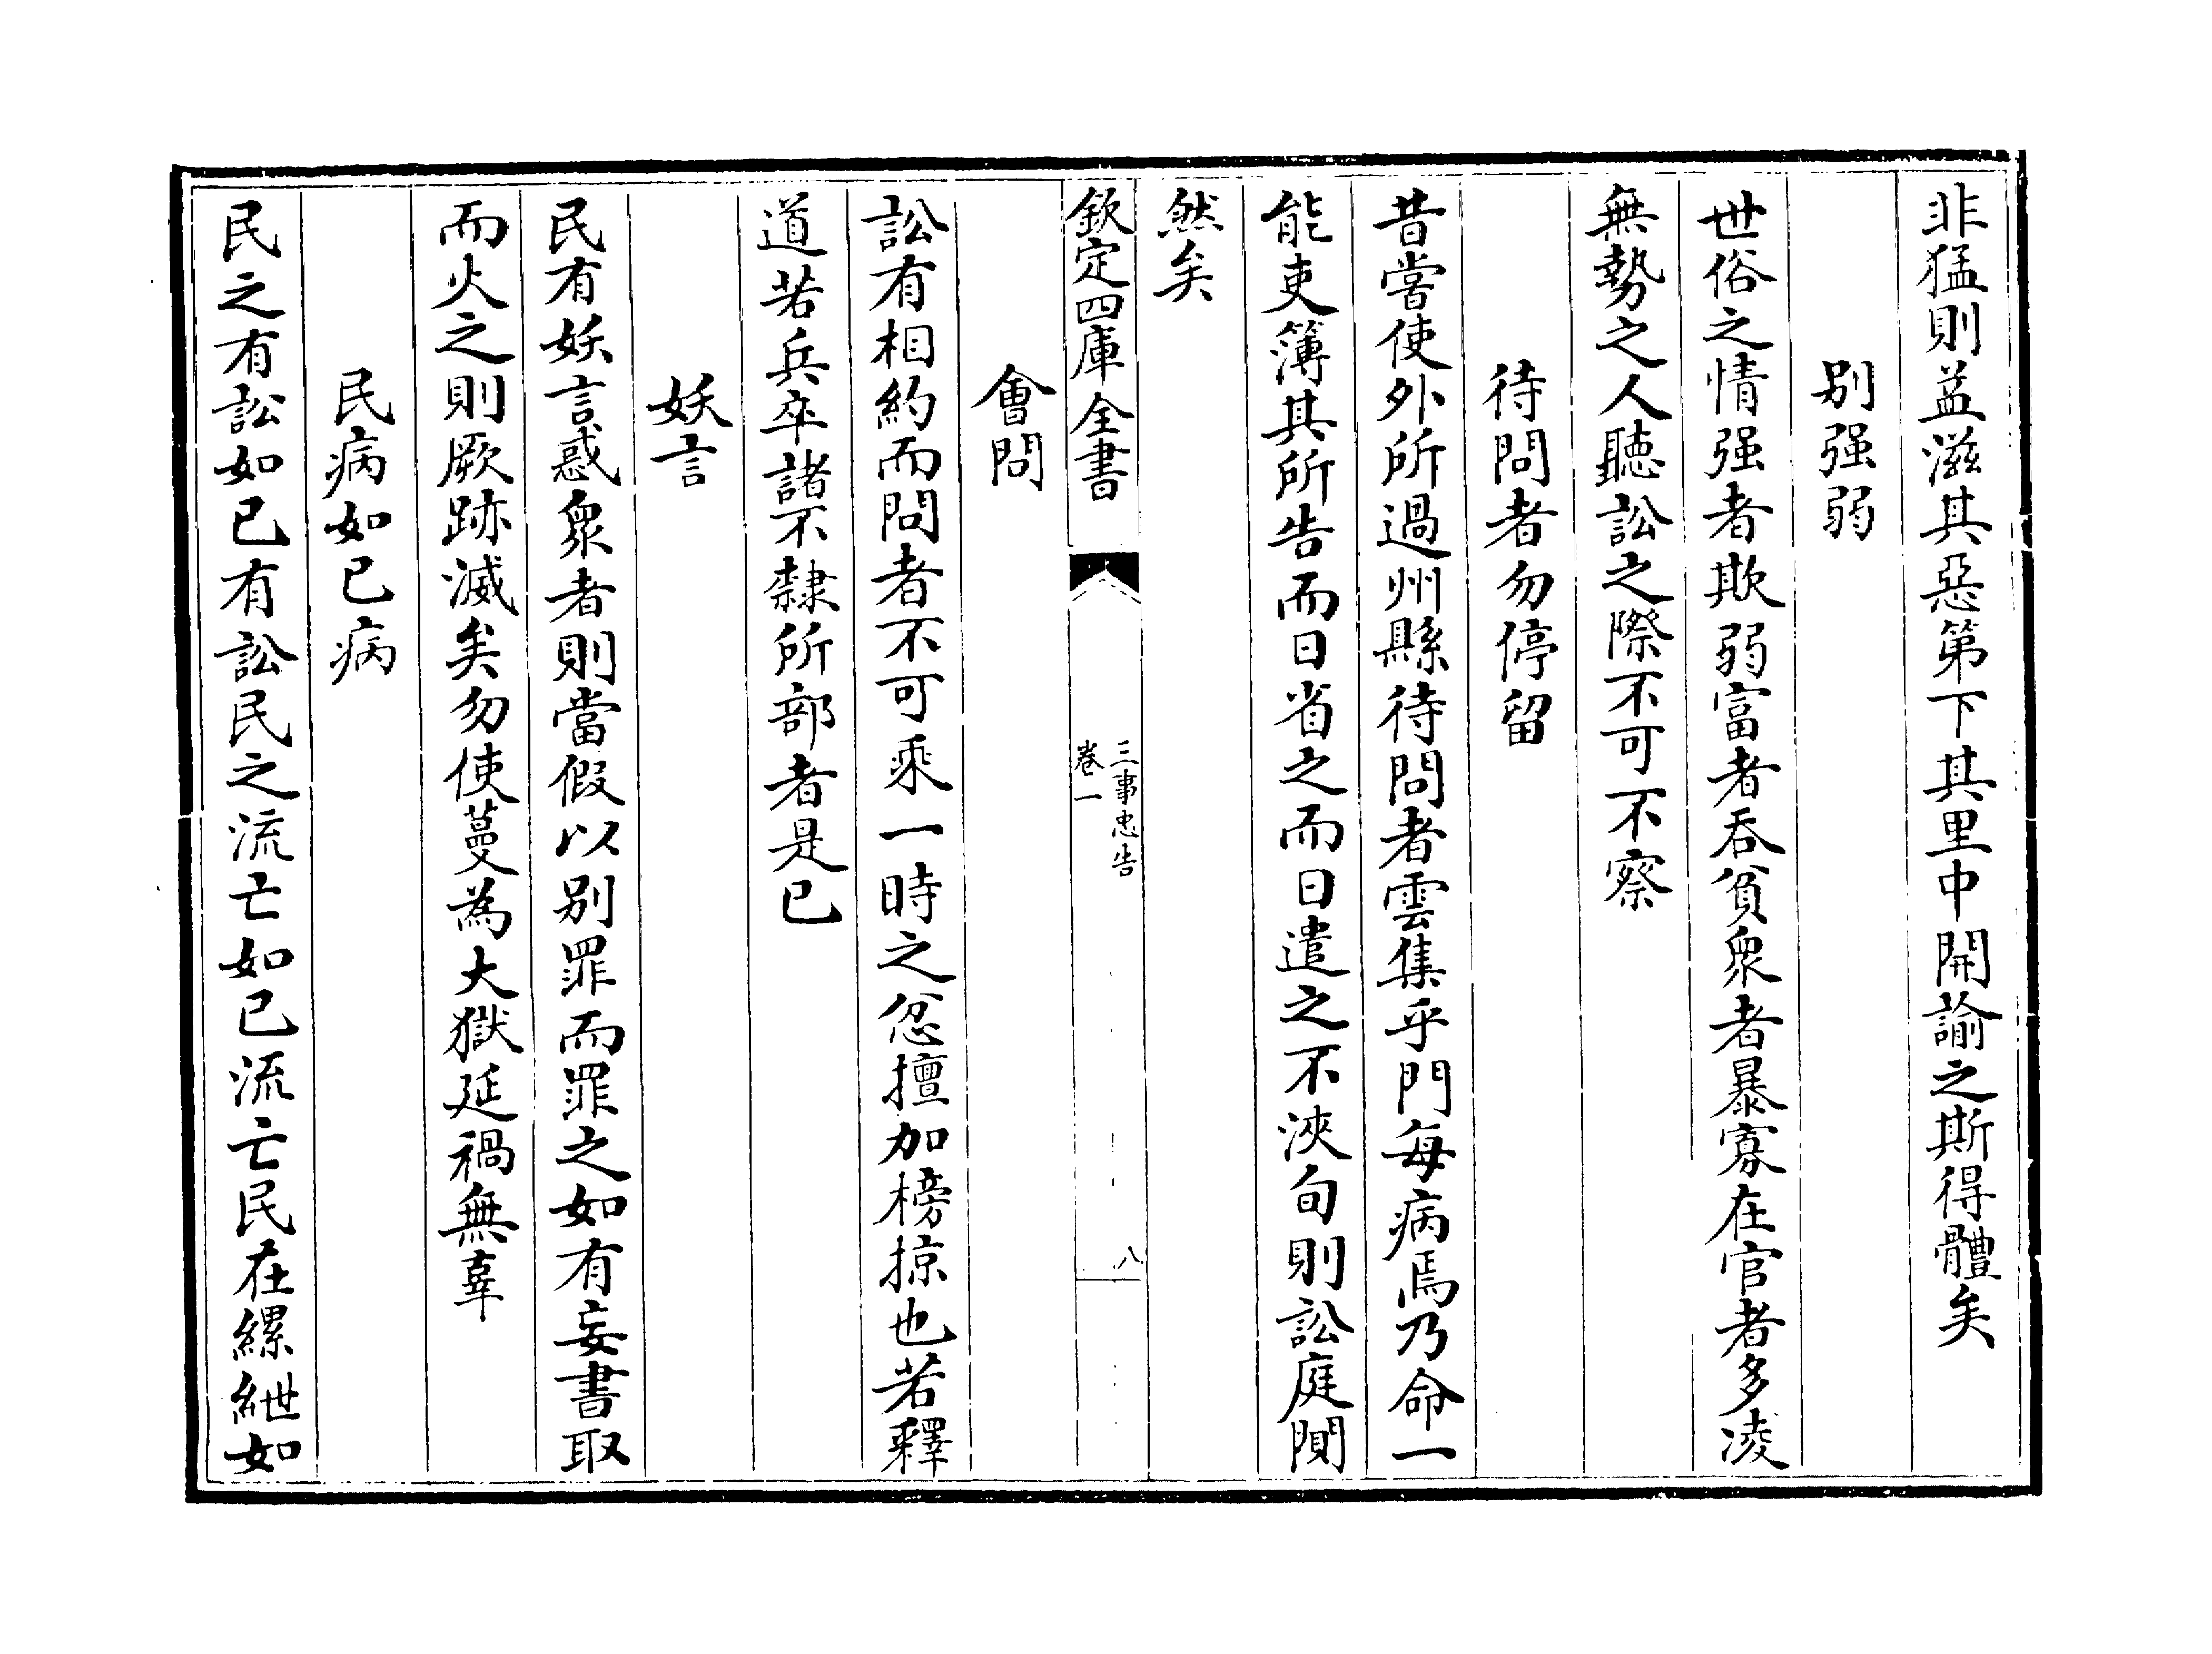 非猛則益滋其惡第下其里中開諭之斯得體矣
别强弱
世俗之情强者欺弱富者吞貧衆者暴寡在官者多凌
無勢之人聽訟之際不可不察
待問者勿停留
昔嘗使外所過州縣待問者雲集乎門每病焉乃命一
能吏簿其所告而日省之而日遣之不浹旬則訟庭閴
然矣
欽定四庫全書
三事忠告
卷一
八
會問
訟有相約而問者不可乘一時之忿擅加榜掠也若釋
道若兵卒諸不隸所部者是已
妖言
民有妖言惑衆者則當假以别罪而罪之如有妄書取
而火之則厥跡滅矣勿使蔓為大獄延禍無辜
民病如已病
民之有訟如已有訟民之流亡如已流亡民在縲紲如